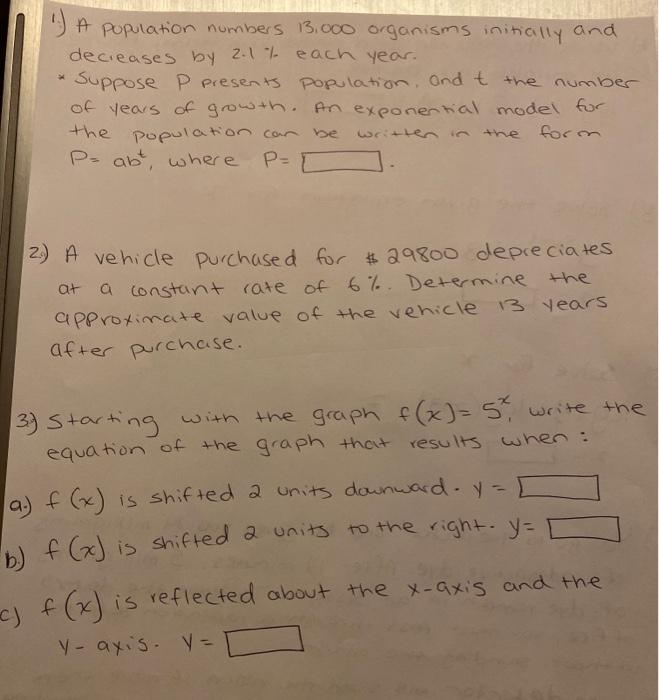 1.) A population numbers 13,000 organisms initially and
decreases by 2.1 % each year.
* Suppose P presents population, and t the number
of years of growth. An exponential model for
the population can be written in the form
P= ab^t, where P= .
2.) A vehicle purchased for $ 29800 depreciates
at a constant rate of 6%. Determine the
approximate value of the vehicle 13 years
after purchase.
3.) Starting with the graph f(x)= 5^x, write the
equation of the graph that results when :
a.) f(x) is shifted 2 units downward. y =
b.) f(x) is shifted 2 units to the right. y=
c) f(x) is reflected about the x-axis and the
y-axis. y=